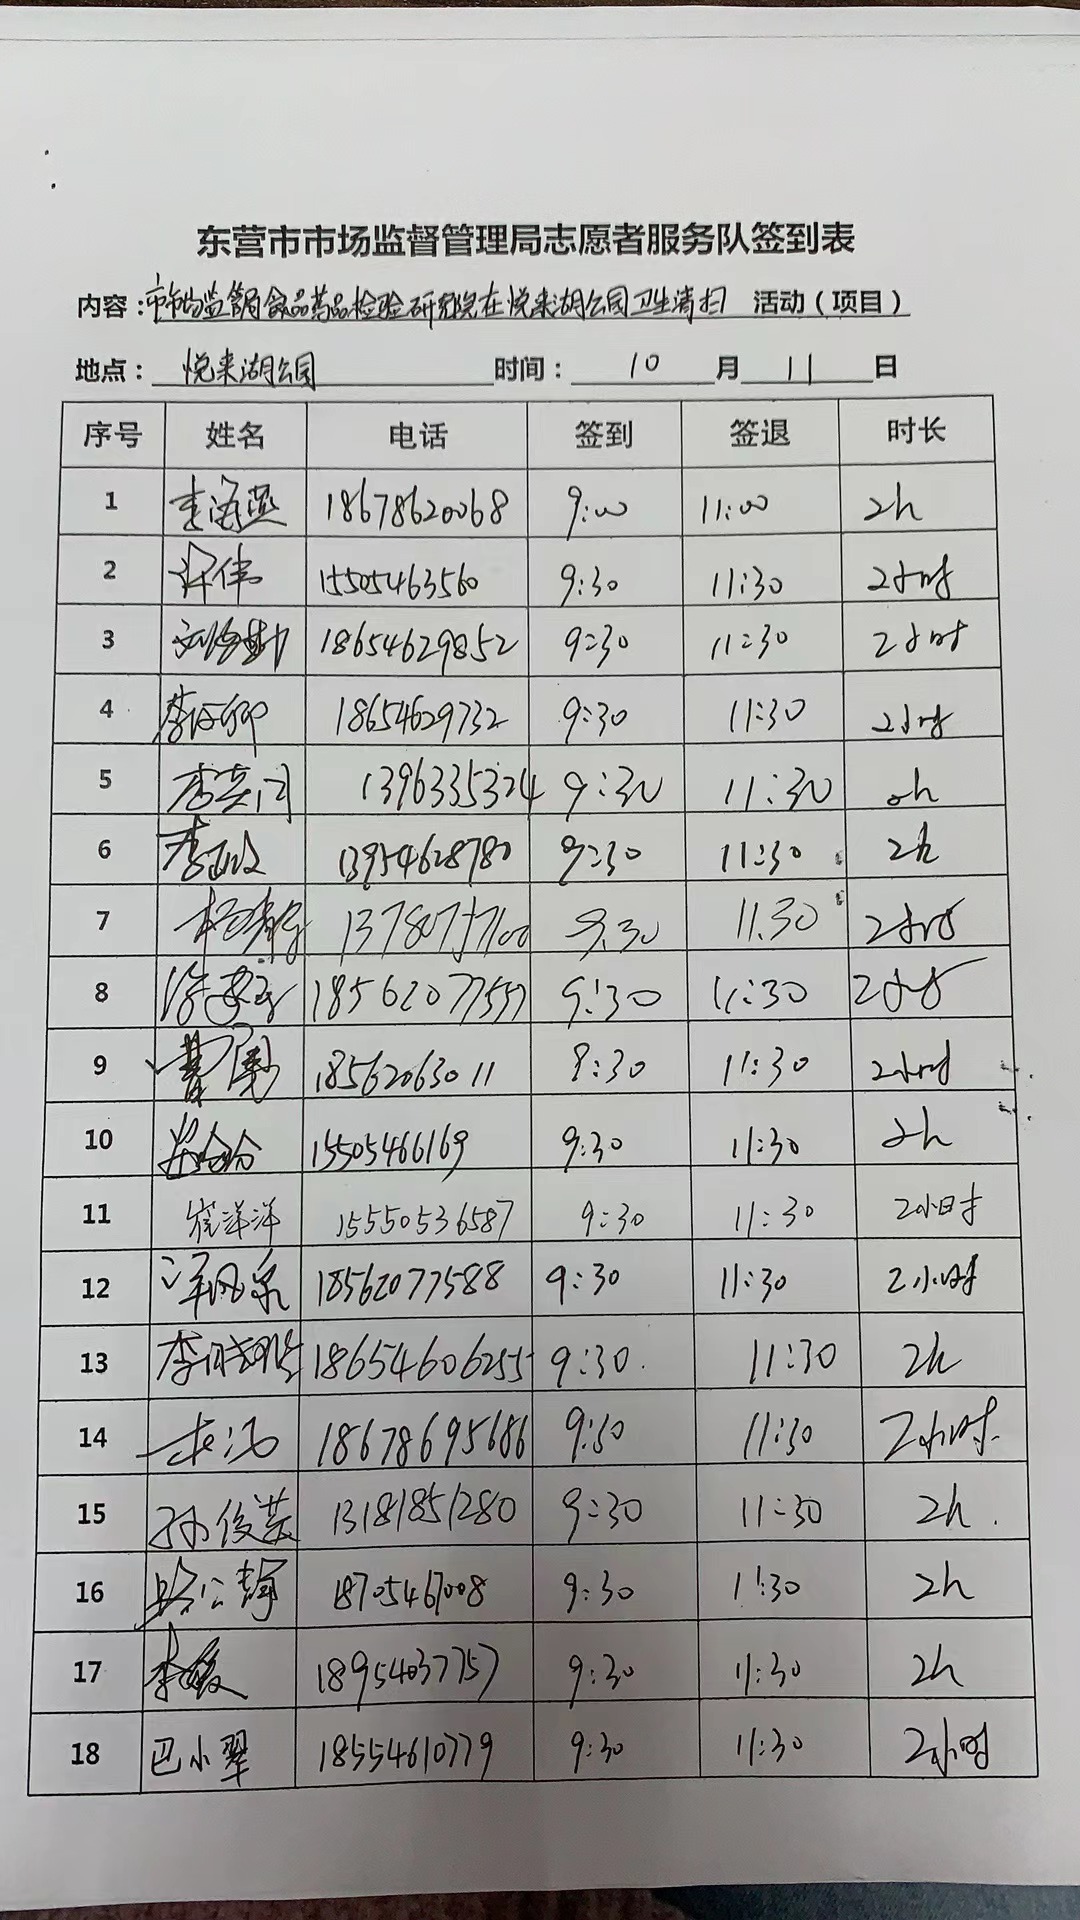 东营市市场监督管理局志愿者服务队签到表
内容：市市场监管局食品药品检验研究院在悦来湖公园卫生清扫 活动（项目）
地点： 悦来湖公园 时间： 10 月 11 日
序号 姓名 电话 签到 签退 时长
1 李海燕 18678620068 9:00 11:00 2h
2 许伟 15505463560 9:30 11:30 2小时
3 18654629852 9:30 11:30 2小时
4 18654629732 9:30 11:30 2小时
5 1396335324 9:30 11:30 2h
6 李政 13954628780 9:30 11:30 2h
7 9.30 11.30 2小时
8 18562077557 9:30 11:30 2小时
9 18562063011 8:30 11:30 2小时
10 15505466169 9:30 11:30 2h
11 崔洋洋 15550536587 9:30 11:30 2小时
12 18562077588 9:30 11:30 2小时
13 18654606255 9:30 11:30 2h
14 18678695686 9:30 11:30 2小时
15 孙俊英 13181851280 9:30 11:30 2h
16 路公静 18705467008 9:30 11:30 2h
17 李媛 18954037757 9:30 11:30 2h
18 巴小翠 18554610779 9:30 11:30 2小时